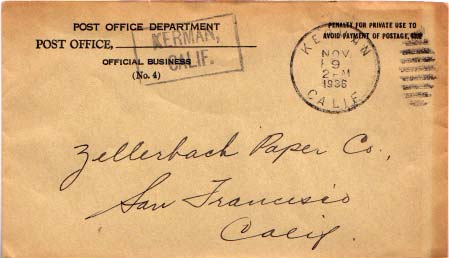 POST OFFICE DEPARTMENT
POST OFFICE,
KERMAN,
CALIF.
OFFICIAL BUSINESS
(No. 4)
PENALTY FOR PRIVATE USE TO
AVOID PAYMENT OF POSTAGE, $300
KERMAN
NOV
9
2 PM
1936
CALIF.
Zellerbach Paper Co.,
San Francisco
Calif.